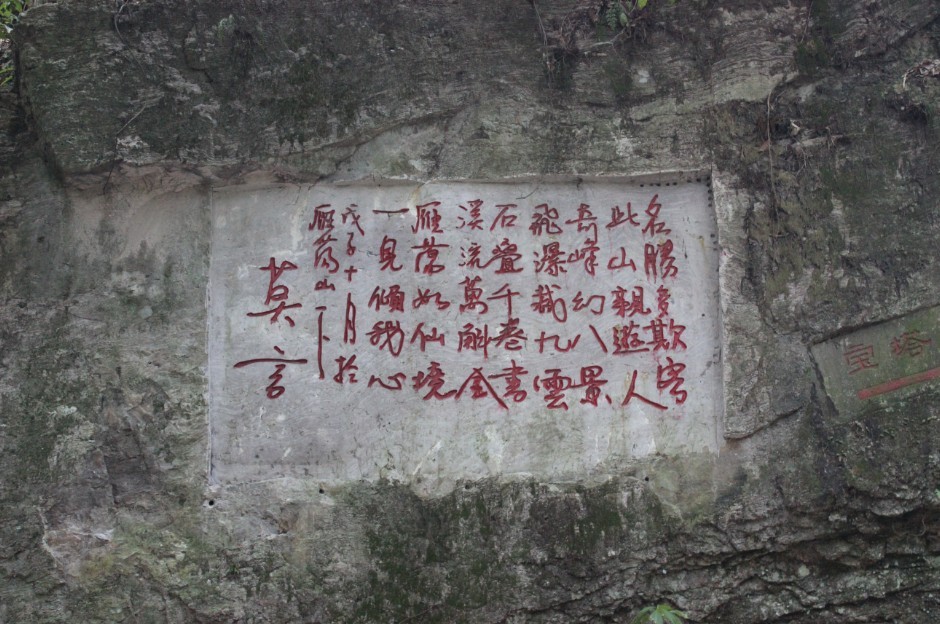 名勝多欺客
此山親遊人
奇峰幻八景
飛瀑裁九雲
石疊千卷書
溪流萬斛金
雁蕩如仙境
一見傾我心
戊子十月於
雁蕩山下
莫言
宝塔